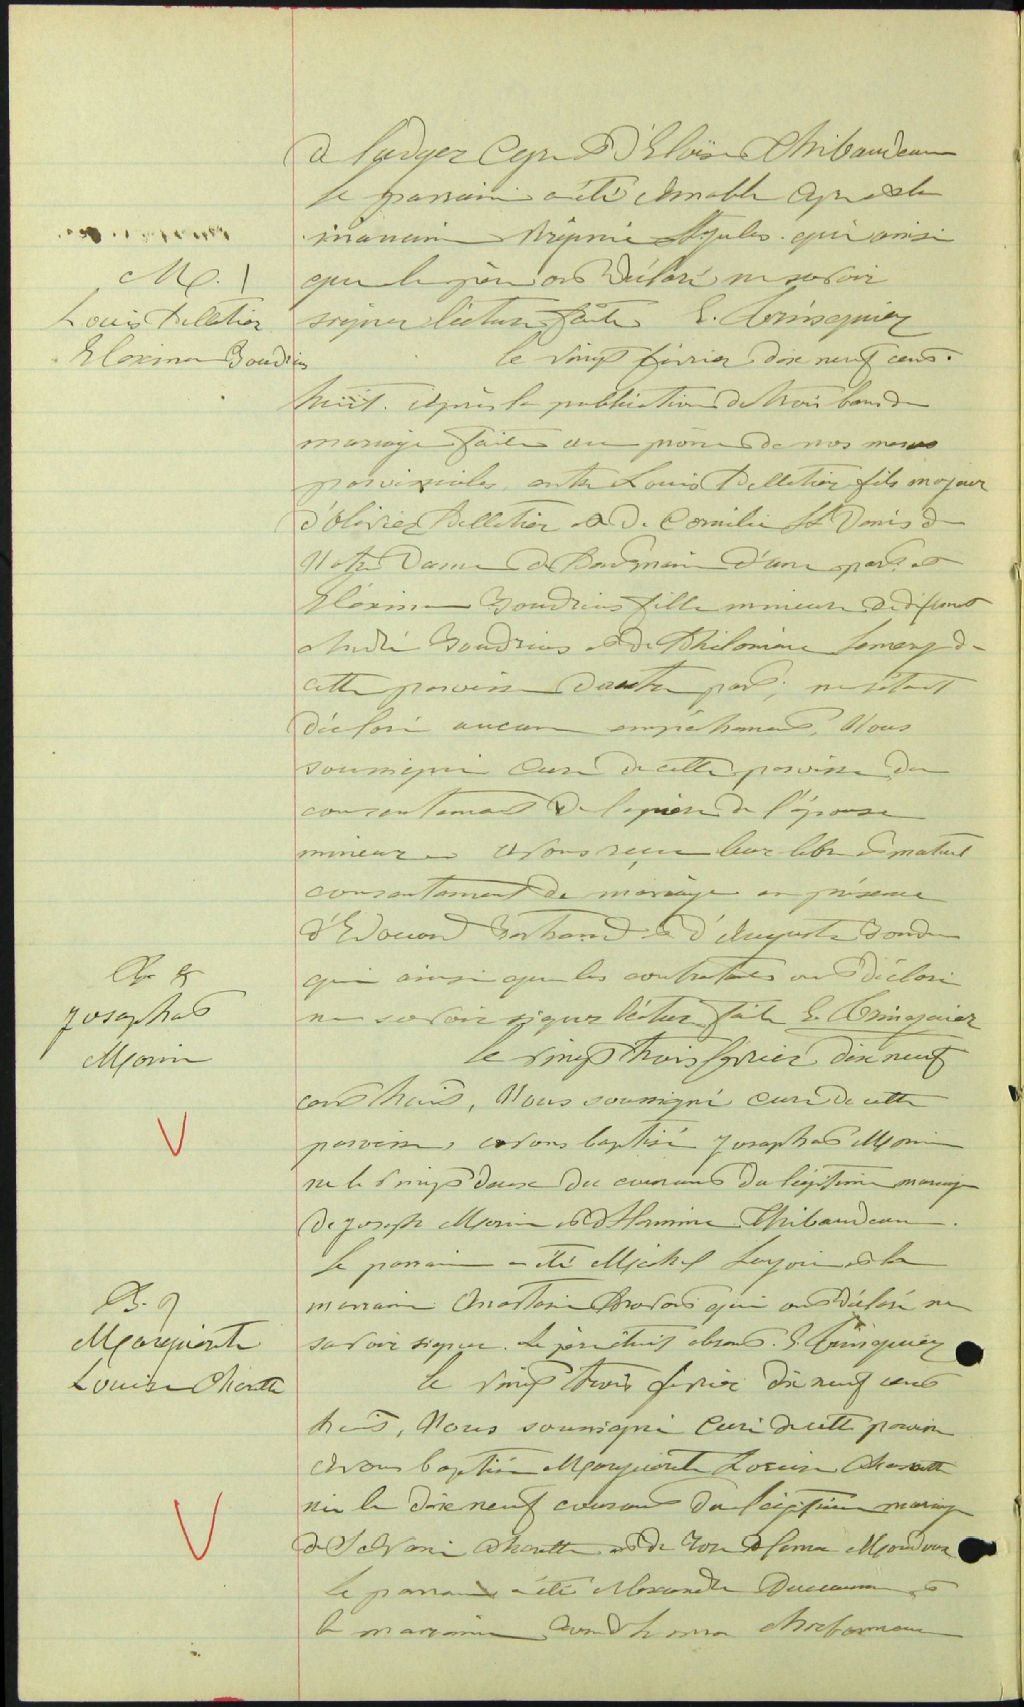 de Ludger Cyr et d'Eloïse Thibaudeau
le parrain a été Amable Cyr et la
marraine St Jules qui ainsi
que le père ont déclaré ne savoir
signer lecture faite E. Tringuier
M. 1
Louis Pelletier
Elexina Goudrius
le vingt février dix neuf cent
huit. après la publication de trois bans de
mariage faite au prône de nos messes
paroissiales, entre Louis Pelletier fils majeur
d'Olivier Pelletier et de St Denis de
Notre Dame de d'une part, et
Eléxina Goudrius fille mineure de défunt
André Goudrius et de Philomène Lemery de
cette paroisse d'autre part; ne s'étant
déclaré aucun empêchement, Nous
soussigné Curé de cette paroisse du
consentement de la mère de l'épouse
mineure avons reçu leur libre et mutuel
consentement de mariage en présence
d'Edouard Bertrand et d'Auguste
qui ainsi que les contractants ont déclaré
ne savoir signer lecture faite E. Tringuier
B. 8
Josaphat
Morin
le vingt trois février dix neuf
cent huit, Nous soussigné curé de cette
paroisse, avons baptisé Josaphat Morin
né le vingt deux du courant du légitime mariage
de Joseph Morin et d'Hermine Thibaudeau.
Le parrain a été Michel et la
marraine Anastasie qui ont déclaré ne
savoir signer. Le père était absent. E. Tringuier
B. 9
Marguerite
Louise Charette
le vingt trois février dix neuf cent
huit, Nous soussigné Curé de cette paroisse
avons baptisé Marguerite Louise Charette
née le dix neuf courant du légitime mariage
de Charette et de Rose
le parrain a été Alexandre et
la marraine